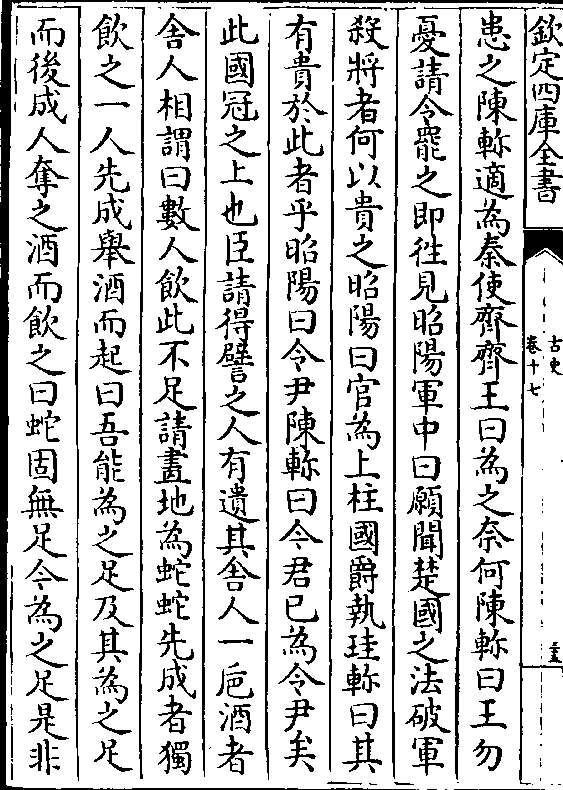 欽定四庫全書
古史
卷十七
患之陳軫適為秦使齊齊王曰為之奈何陳軫曰王勿
憂請令罷之即徃見昭陽軍中曰願聞楚國之法破軍
殺將者何以貴之昭陽曰官為上柱國爵執珪軫曰其
有貴於此者乎昭陽曰令尹陳軫曰今君已為令尹矣
此國冠之上也臣請得譬之人有遺其舍人一巵酒者
舍人相謂曰數人飲此不足請畫地為蛇蛇先成者獨
飲之一人先成舉酒而起曰吾能為之足及其為之足
而後成人奪之酒而飲之曰蛇固無足今為之足是非